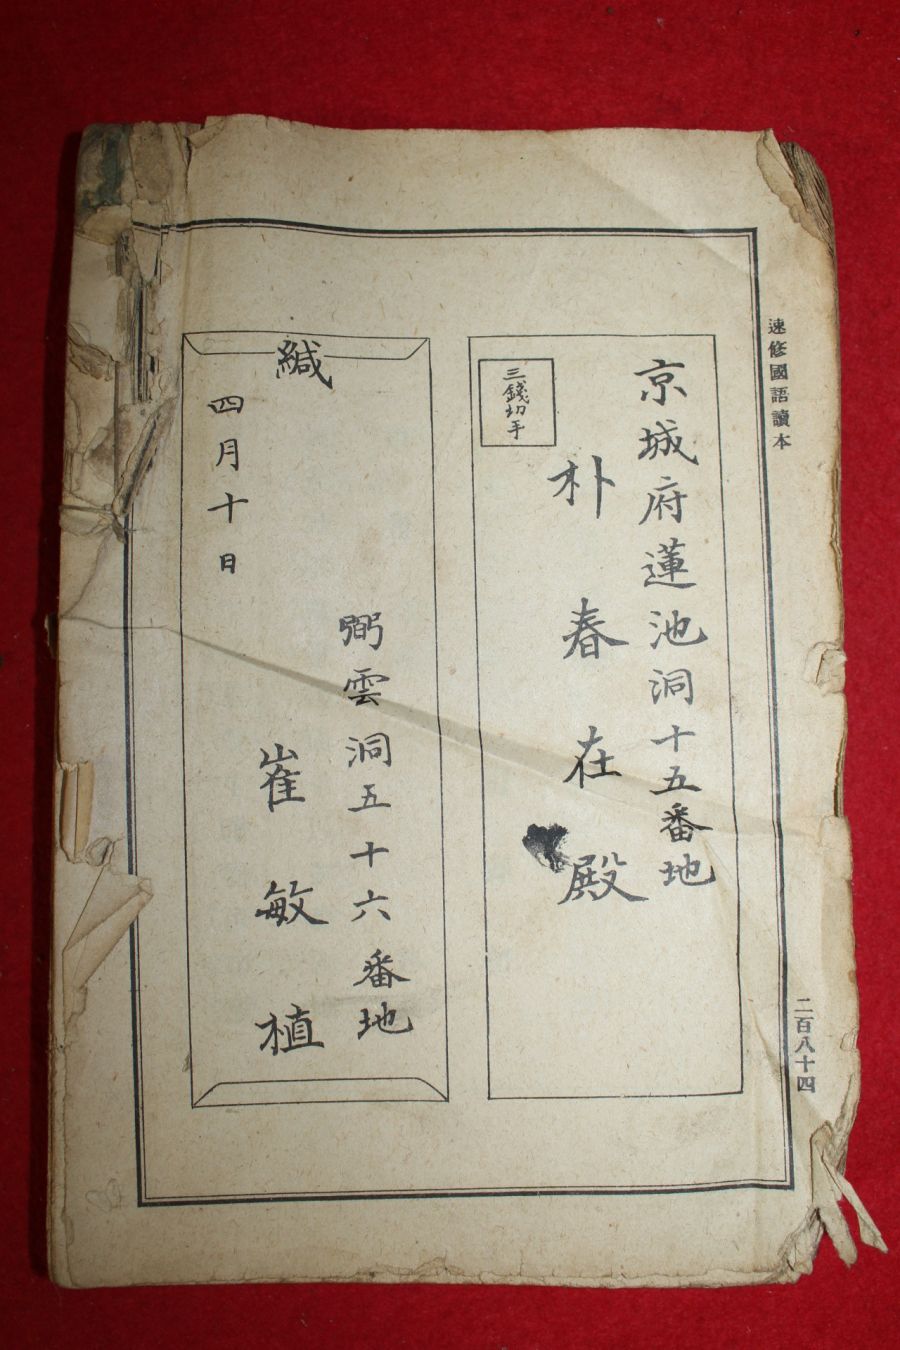 速修國語讀本
京城府蓮池洞十五番地
朴春在殿
三錢切手
緘
弼雲洞五十六番地
崔敏植
四月十日
二百八十四